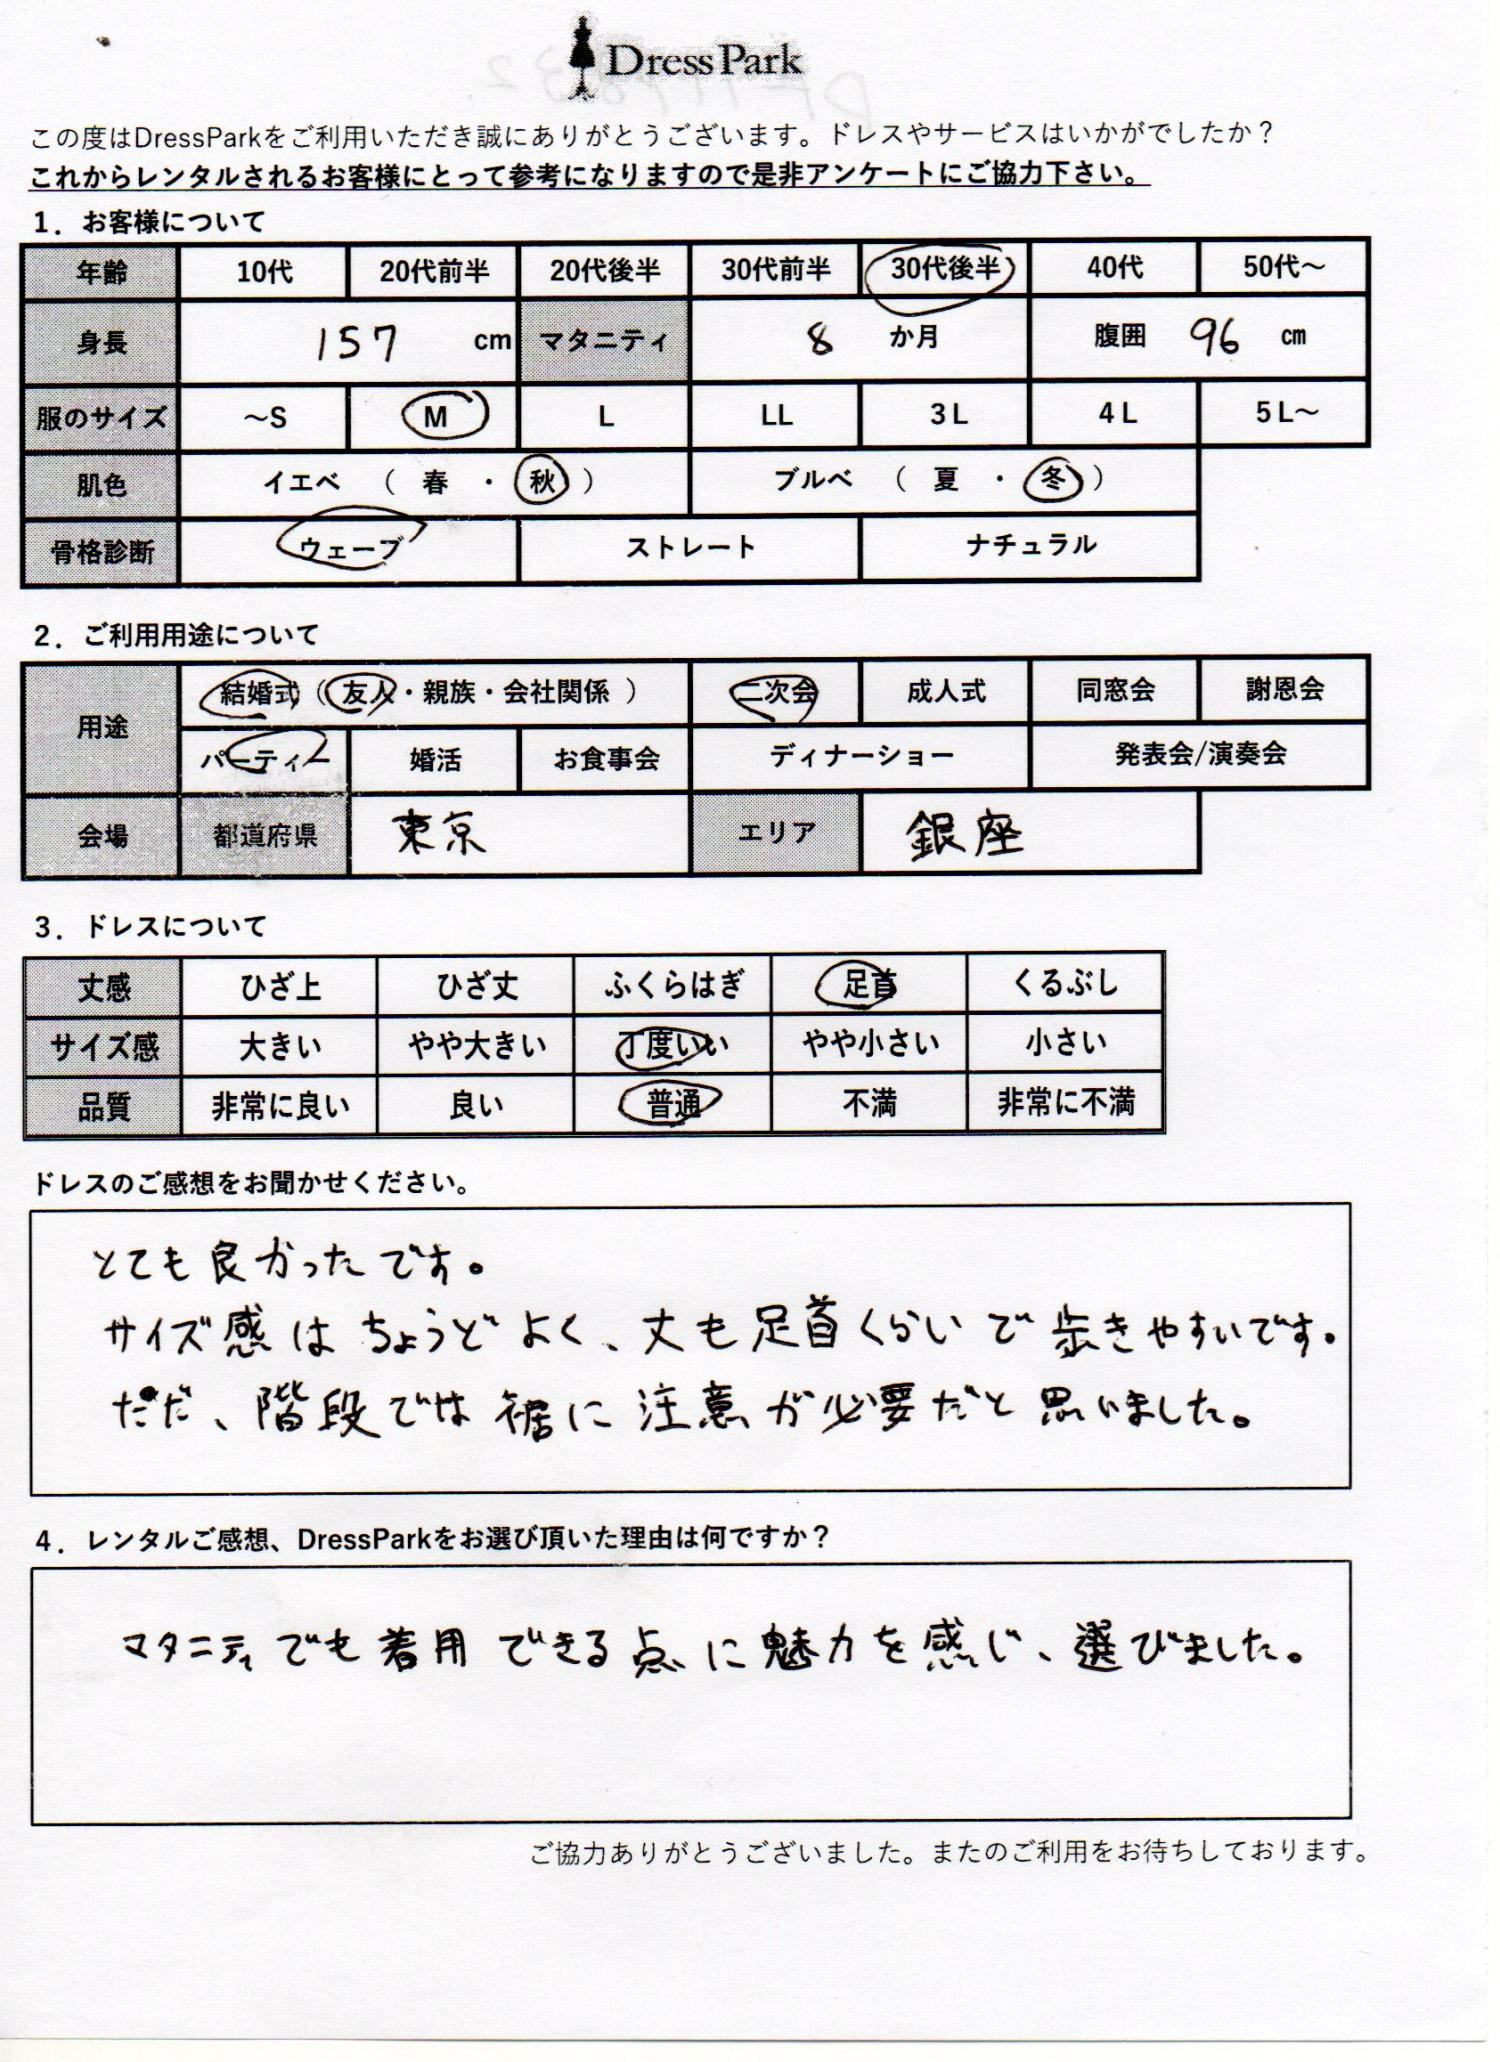 DressPark
この度はDressParkをご利用いただき誠にありがとうございます。ドレスやサービスはいかがでしたか？
これからレンタルされるお客様にとって参考になりますので是非アンケートにご協力下さい。
1．お客様について
年齢 10代 20代前半 20代後半 30代前半 30代後半 40代 50代～
身長 157 cm マタニティ 8 か月 腹囲 96 cm
服のサイズ ～S M L LL 3L 4L 5L～
肌色 イエベ （ 春 ・ 秋 ） ブルベ （ 夏 ・ 冬 ）
骨格診断 ウェーブ ストレート ナチュラル
2．ご利用用途について
用途 結婚式（ 友人・親族・会社関係 ） 二次会 成人式 同窓会 謝恩会
パーティー 婚活 お食事会 ディナーショー 発表会/演奏会
会場 都道府県 東京 エリア 銀座
3．ドレスについて
丈感 ひざ上 ひざ丈 ふくらはぎ 足首 くるぶし
サイズ感 大きい やや大きい 丁度いい やや小さい 小さい
品質 非常に良い 良い 普通 不満 非常に不満
ドレスのご感想をお聞かせください。
とても良かったです。
サイズ感はちょうどよく、丈も足首くらいで歩きやすいです。
ただ、階段では裾に注意が必要だと思いました。
4．レンタルご感想、DressParkをお選び頂いた理由は何ですか？
マタニティでも着用できる点に魅力を感じ、選びました。
ご協力ありがとうございました。またのご利用をお待ちしております。